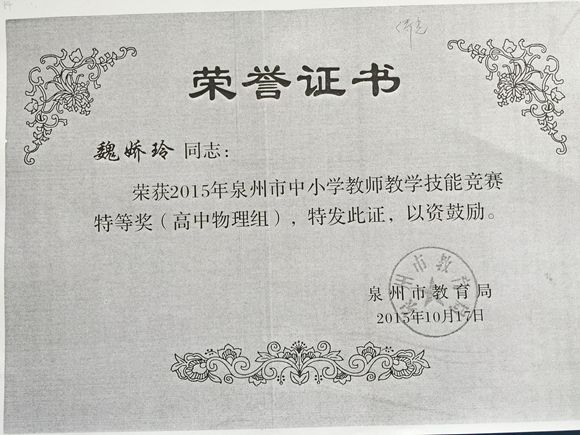 荣誉证书
魏娇玲 同志：
荣获2015年泉州市中小学教师教学技能竞赛
特等奖（高中物理组），特发此证，以资鼓励。
泉州市教育局
泉州市教育局
2015年10月17日